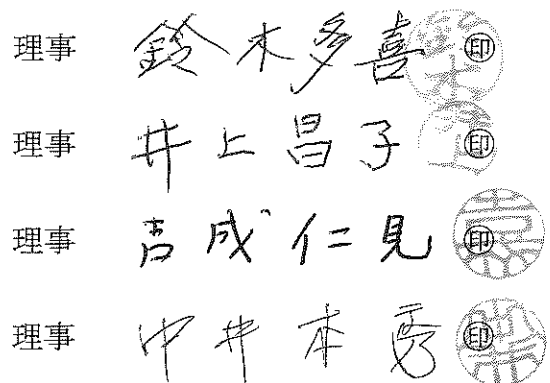 理事 鈴木多喜 印
理事 井上昌子 印
理事 吉成仁見 印
理事 中井本秀 印